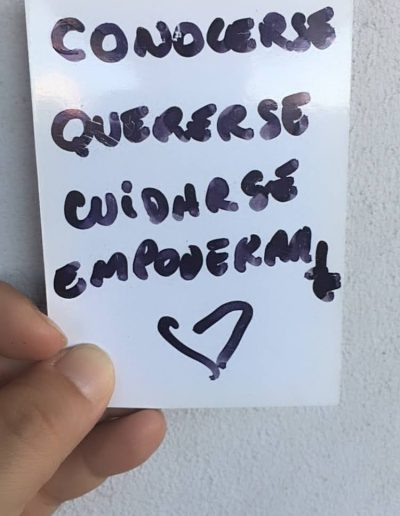 CONOCERSE
QUERERSE
CUIDARSE
EMPODERAR